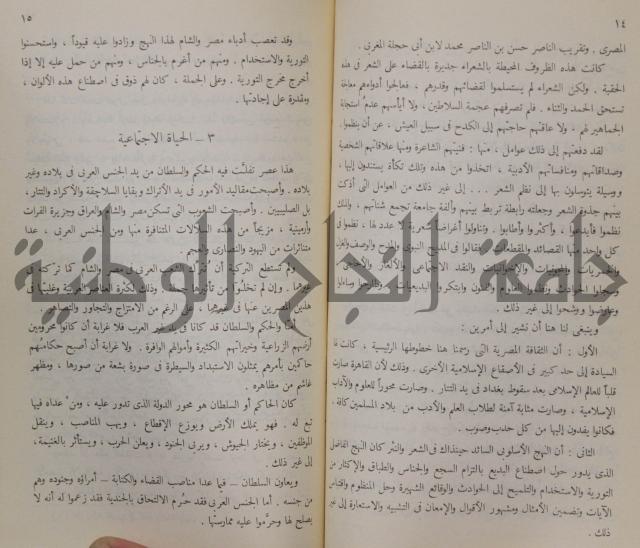 ١٤
المصرى . وتقريب الناصر حسن بن الناصر محمد لابن أبى حجلة المغربى .
كانت هذه الظروف المحيطة بالشعراء جديرة بالقضاء على الشعر فى هذه
الحقبة . ولكن الشعراء لم يستسلموا لقضائهم وقدرهم ، فعالجوا أدواءهم معالجة
تستحق الحمد والثناء . فلم تصرفهم عجمة السلاطين ، ولا أيأسهم عدم استجابة
الجماهير لهم ، ولا عاقتهم حاجتهم إلى الكدح فى سبيل العيش ، عن أن ينظموا .
لقد دفعتهم إلى ذلك عوامل ، منها : فنيتهم الشاعرة ومنها علاقاتهم الشخصية
وصداقاتهم ومنافساتهم الأدبية ، اتخذوا من هذه وتلك تكأة يستندون إليها ،
ووسيلة يتوسلون بها إلى نظم الشعر ... إلى غير ذلك من العوامل التى أذكت
بينهم جذوة الشعر وجعلته رابطة تربط بينهم وألفة جامعة تجمع شتاتهم ، ولذلك
نظموا فأبدعوا ، وأكثروا وأطابوا . وتناولوا أغراضا شعرية لا عدد لها ، نظموا فى
كل واحد منها القصائد والمقطعات
والنقد الاجتماعى والألغاز والأحاجى
وابتكروا البديعيات
وعارضوا ووشحوا إلى غير ذلك .
وينبغى لنا هنا أن نشير إلى أمرين :
الأول : أن الثقافة المصرية التى رسمنا هنا خطوطها الرئيسية ، كانت لها
السيادة إلى حد كبير فى الأصقاع الإسلامية الأخرى . وذلك لأن القاهرة صارت
قلباً للعالم الإسلامى بعد سقوط بغداد فى يد التتار . وصارت محوراً للعلوم والآداب
الإسلامية ، وصارت مثابة آمنة لطلاب العلم والأدب من بلاد المسلمين كافة ،
فكانوا يفدون إليها من كل حدب وصوب .
الثانى : أن النهج الأسلوبى السائد حينذاك فى الشعر والنثر كان النهج الفاضلى
الذى يدور حول اصطناع البديع بالتزام السجع والجناس والطباق والإكثار من
التورية والاستخدام والتلميح إلى الحوادث والوقائع الشهيرة وحل المنظوم واقتباس
الآيات وتضمين الأمثال ومشهور الأقوال والإمعان فى التشبيه والاستعارة إلى غير
ذلك .
١٥
وقد تعصب أدباء مصر والشام لهذا النهج وزادوا عليه قيوداً ، واستحسنوا
التورية والاستخدام . ومنهم من أغرم بالجناس ، ومنهم من حمل عليه إلا إذا
أخرج مخرج التورية . وعلى الجملة ، كان لهم ذوق فى اصطناع هذه الألوان ،
ومقدرة على إجادتها .
٣ – الحياة الاجتماعية
هذا عصر تفلّت فيه الحكم والسلطان من يد الجنس العربى فى بلاده وغير
بلاده . وأصبحت مقاليد الأمور فى يد الأتراك وبقايا السلاجقة والأكراد والتتار ،
بل الصليبيين . وأصبحت الشعوب التى تسكن مصر والشام والعراق وجزيرة الفرات
وأرمينية ، مزيجاً من هذه السلالات المتنافرة منها ومن الجنس العربى ، عدا
متناثرات من اليهود والنصارى والعجم .
ولم تستطع التركية أن تترك الشعب العربى فى مصر والشام كما تركته فى
غيرهما . وإن لم تخلوا من تأثيرها
هذين المصرين عنها فى غيرهما ، على الرغم من الامتزاج والتجاور والتصاهر .
أما والحكم والسلطان قد كانا فى يد غير العرب فلا غرابة أن كانوا محرومين
أرضهم الزراعية وخيراتهم الكثيرة وأموالهم الوافرة . ولا غرابة أن أصبح حكامهم
حاكمين بأمرهم يمثلون الاستبداد والسيطرة فى صورة بشعة من صورها ، ومظهر
غاشم من مظاهره .
كان الحاكم أو السلطان هو محور الدولة الذى تدور عليه ، ومن عداه فيها
تبع له . فهو يملك الأرض ويوزع الإقطاع ، ويهب المناصب ، وينقل
الموظفين ، ويختار الجيوش ، ويربى الجنود ، ويعلن الحرب ، ويستأثر بالغنيمة ،
إلى غير ذلك .
ويعاون السلطان – فيما عدا مناصب القضاء والكتابة – أمراؤه وجنوده وهم
من جنسه . أما الجنس العربى فقد حُرم الالتحاق بالجندية فقد زعموا له أنه لا
يصلح لها وحرّموا عليه ممارستها .
جامعة النجاح الوطنية